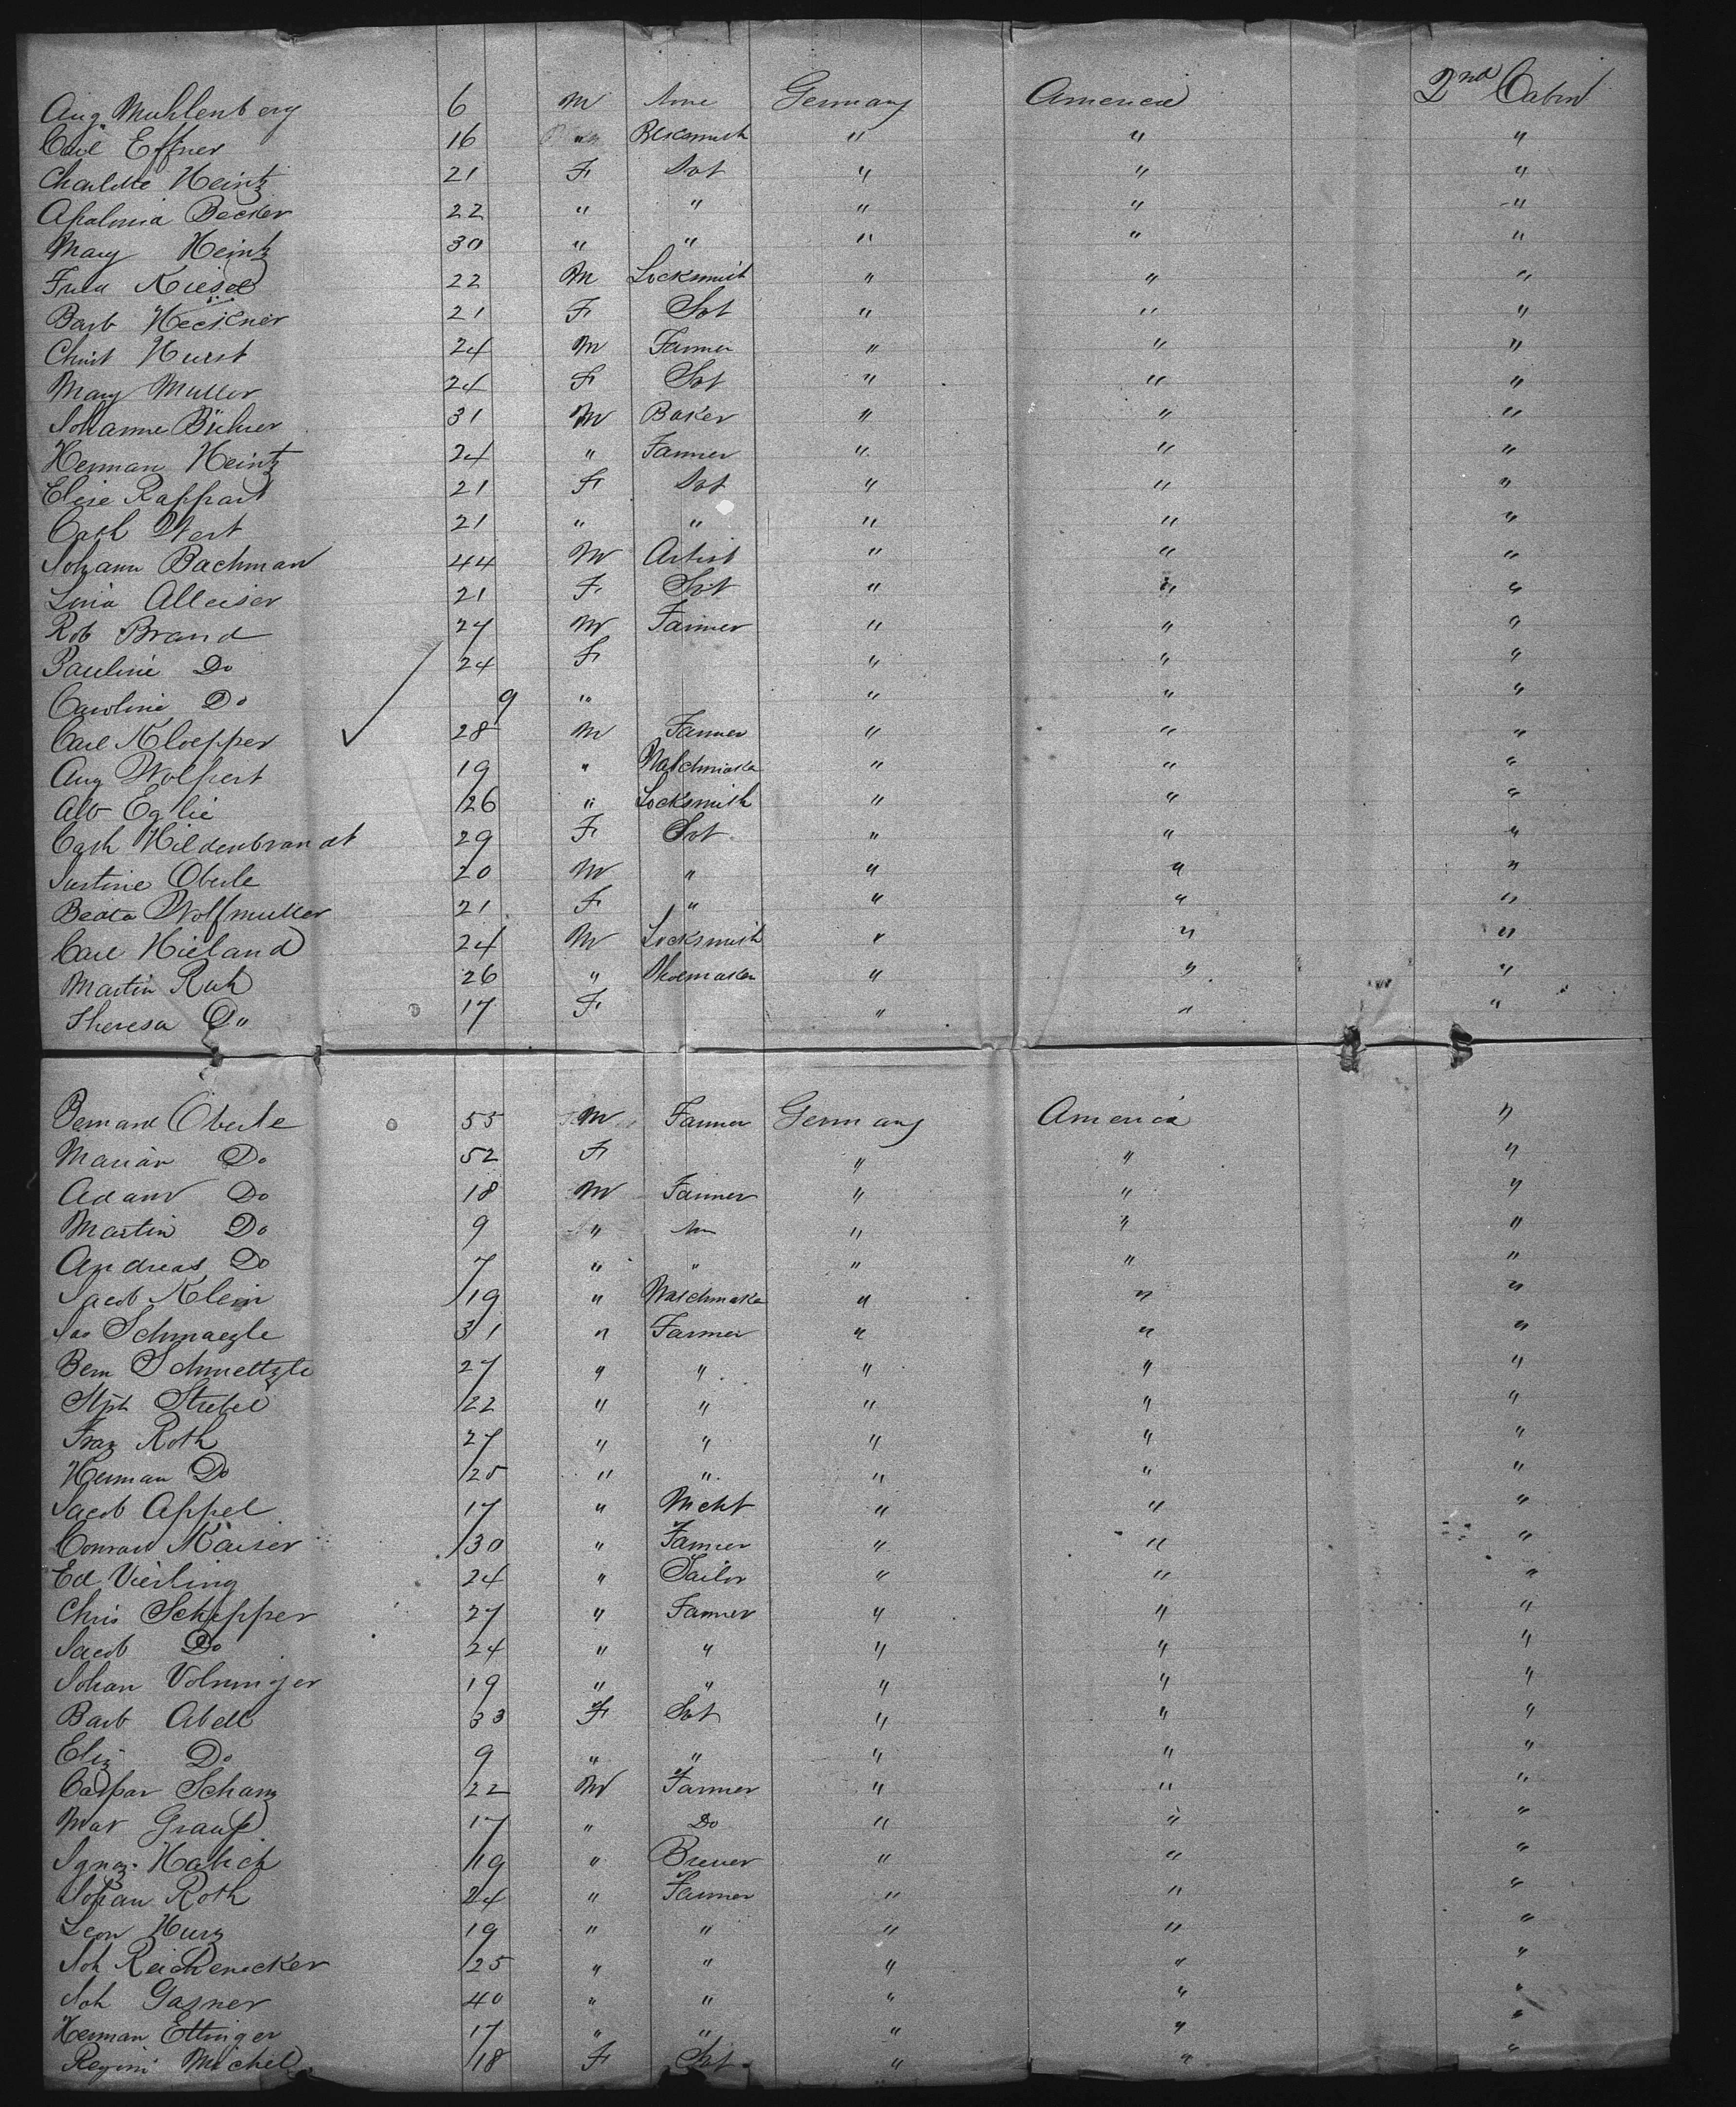 Aug Muhlenberg 6 M None Germany America 2nd Cabin
Carl Effner 16 " Blksmith " " "
Charlotte Heintz 21 F Svt " " "
Apalonia Becker 22 " " " " "
Mary Heintz 30 " " " " "
Fred Kiesel 22 M Locksmith " " "
Barb Heckner 21 F Svt " " "
Christ Hurst 24 M Farmer " " "
Mary Muller 24 F Svt " " "
Johanne Bührer 31 M Baker " " "
Herman Heintz 24 " Farmer " " "
Elise Rappart 21 F Svt " " "
Cath Wert 21 " " " " "
Johann Bachman 44 M Artist " " "
Lina Alleiser 21 F Svt " " "
Rob Brand 27 M Farmer " " "
Pauline Do 24 F " " "
Caroline Do 9 " " " "
Carl Kloepper 28 M Farmer " " "
Aug Wolpert 19 " Watchmaker " " "
Alb Eglie 26 " Locksmith " " "
Cath Hildenbrandt 29 F Svt " " "
Justine Oberle 20 M " " " "
Beata Wolfmuller 21 F " " " "
Carl Hieland 24 M Locksmith " " "
Martin Ruh 26 " Shoemaker " " "
Theresa Do 17 F " " "
Bernard Oberle 55 M Farmer Germany America "
Marian Do 52 F " " "
Adam Do 18 M Farmer " " "
Martin Do 9 " Non " " "
Andreas Do 7 " " " " "
Jacob Klein 19 " Watchmaker " " "
Jos Schmaezle 31 " Farmer " " "
Bern Schmeltzle 27 " " " " "
Stph Strebel 22 " " " " "
Franz Roth 27 " " " " "
Herman Do 25 " " " " "
Jacob Appel 17 " Mcht " " "
Conrad Kaiser 30 " Farmer " " "
Ed Vierling 24 " Tailor " " "
Chris Schepper 27 " Farmer " " "
Jacob Do 24 " " " " "
Johan Volninger 19 " " " " "
Barb Abell 33 F Svt " " "
Eliz Do 9 " " " " "
Caspar Schanz 22 M Farmer " " "
Mar Graup 17 " Do " " "
Ignaz Habich 19 " Brewer " " "
Johan Roth 24 " Farmer " " "
Leon Hurz 19 " " " " "
Joh Reichenecker 25 " " " " "
Joh Gasner 40 " " " " "
Herman Ettinger 17 " " " " "
Regini Michel 18 F Svt " " "